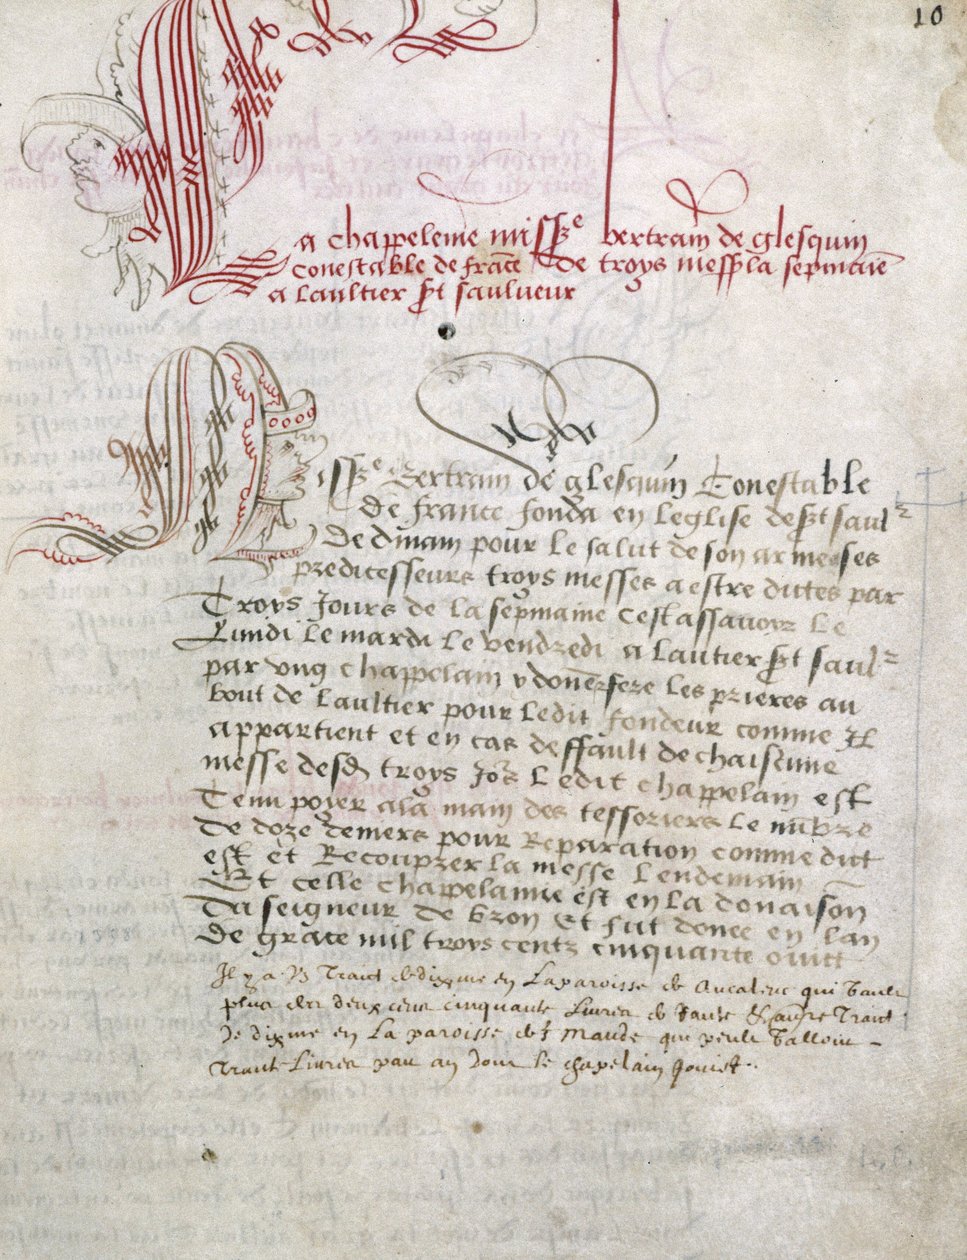 10
La chappelenie miss^re bertram de glesquin
Conestable de frãce De troys mess p la sepmaiẽ
a laultier s^t saulueur
Miss^re Bertram de glesquin Conestable
de france fonda en leglise de s^t saul^r
De dinam pour le salut de son ame et ses
predicesseurs troys messes a estre dictes par
Troys Jours de la sepmaine Cest assauoir Le
Lundi le mardi le vendredi a lautier s^t saul^r
par vng chappelain y doner fere les prieres au
bout de laultier pour ledit fondeur comme Il
appartient et en cas deffault de chaiscune
messe desd troys Jo^rs Ledit chappelain est
Tenu poyer a la main des tessoriers Le nu̅bre
de doze deniers pour Reparation comme dict
est et Recouprer la messe lendemain
Et celle chappelanie est en la donaison
Du seigneur de bron Et fut donee en lan
De grace mil troys centz cinquante ouict
Il y a Traict de dixme en La paroisse de Aucaleuc qui vault
plus de deux cens cinquante Liures de Rante & autre Traict
de dixme en La paroisse de s^t Maudé qui peult valloir
Trante Liures par an dont le chapelain Jouist